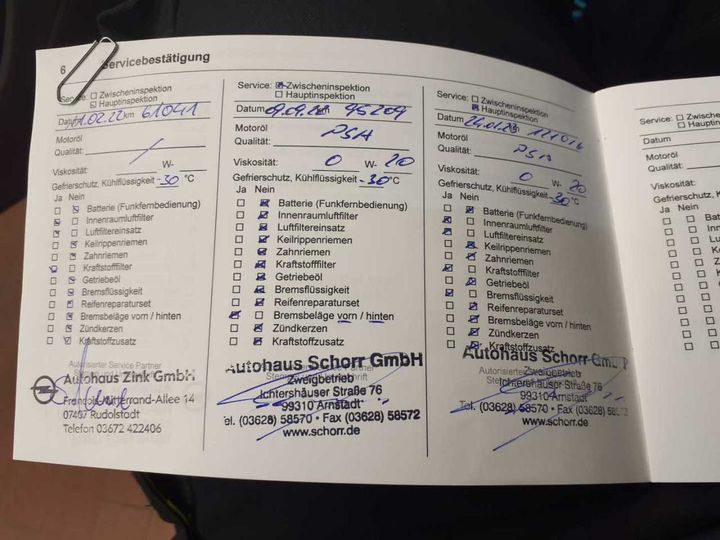 6 Servicebestätigung
Service: Zwischeninspektion
Hauptinspektion
Datum 11.02.22 km 61041
Motoröl
Qualität: /
Viskosität: W-
Gefrierschutz, Kühlflüssigkeit -30 °C
Ja Nein
Batterie (Funkfernbedienung)
Innenraumluftfilter
Luftfiltereinsatz
Keilrippenriemen
Zahnriemen
Kraftstofffilter
Getriebeöl
Bremsflüssigkeit
Reifenreparaturset
Bremsbeläge vorn / hinten
Zündkerzen
Kraftstoffzusatz
Autorisierter Service Partner
Autohaus Zink GmbH
07407 Rudolstadt
Telefon 03672 422406
Service: Zwischeninspektion
Hauptinspektion
Datum 09.09.22 km 95209
Motoröl
Qualität: PSA
Viskosität: 0 W- 20
Gefrierschutz, Kühlflüssigkeit -30°C
Ja Nein
Batterie (Funkfernbedienung)
Innenraumluftfilter
Luftfiltereinsatz
Keilrippenriemen
Zahnriemen
Kraftstofffilter
Getriebeöl
Bremsflüssigkeit
Reifenreparaturset
Bremsbeläge vorn / hinten
Zündkerzen
Kraftstoffzusatz
Autohaus Schorr GmbH
Zweigbetrieb
Ichtershäuser Straße 76
99310 Arnstadt
Tel. (03628) 58570 • Fax (03628) 58572
www.schorr.de
Service: Zwischeninspektion
Hauptinspektion
Datum
Motoröl
Qualität: PSA
Viskosität: 0 W- 20
Gefrierschutz, Kühlflüssigkeit -30°C
Ja Nein
Batterie (Funkfernbedienung)
Innenraumluftfilter
Luftfiltereinsatz
Keilrippenriemen
Zahnriemen
Kraftstofffilter
Getriebeöl
Bremsflüssigkeit
Reifenreparaturset
Bremsbeläge vorn / hinten
Zündkerzen
Kraftstoffzusatz
Autohaus Schorr
Zweigbetrieb
Ichtershäuser Straße 76
99310 Arnstadt
Tel. (03628) 58570 • Fax (03628)
www.schorr.de
Service:
Datum
Motoröl
Qualität:
Viskosität:
Gefrierschutz,
Ja Nein